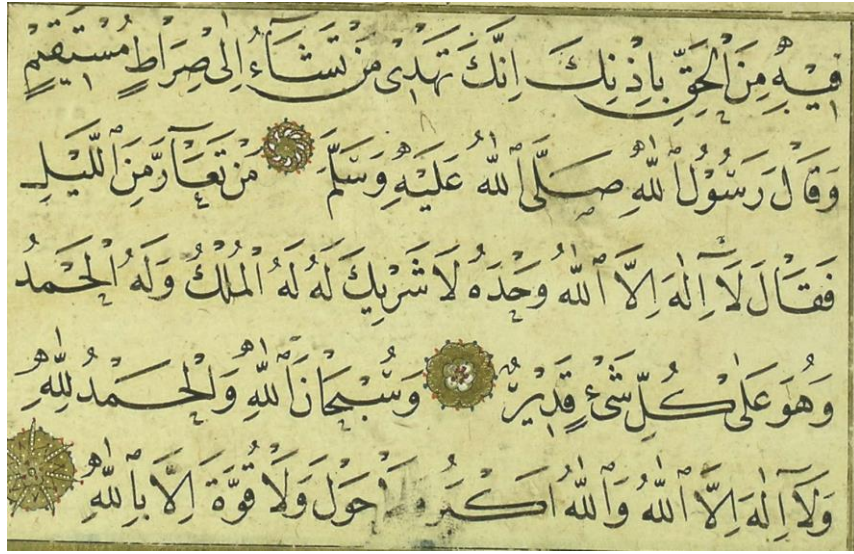 فِيهِ مِنَ الْحَقِّ بِاِذْنِكَ اِنَّكَ تَهْدِى مَنْ تَشَآءُ اِلٰى صِرَاطٍ مُسْتَقِيمٍ
وَقَالَ رَسُولُ ٱللّٰهِ صَلَّى ٱللّٰهُ عَلَيْهِ وَسَلَّمَ مَنْ تَعَآرَّ مِنَ ٱللَّيْلِ
فَقَالَ لَآ اِلٰهَ اِلَّا ٱللّٰهُ وَحْدَهُ لَا شَرِيكَ لَهُ لَهُ الْمُلْكُ وَلَهُ الْحَمْدُ
وَهُوَ عَلٰى كُلِّ شَىْءٍ قَدِيرٌ وَسُبْحَانَ ٱللّٰهِ وَالْحَمْدُ لِلّٰهِ
وَلَآ اِلٰهَ اِلَّا ٱللّٰهُ وَٱللّٰهُ اَكْبَرُ حَوْلَ وَلَا قُوَّةَ اِلَّا بِٱللّٰهِ